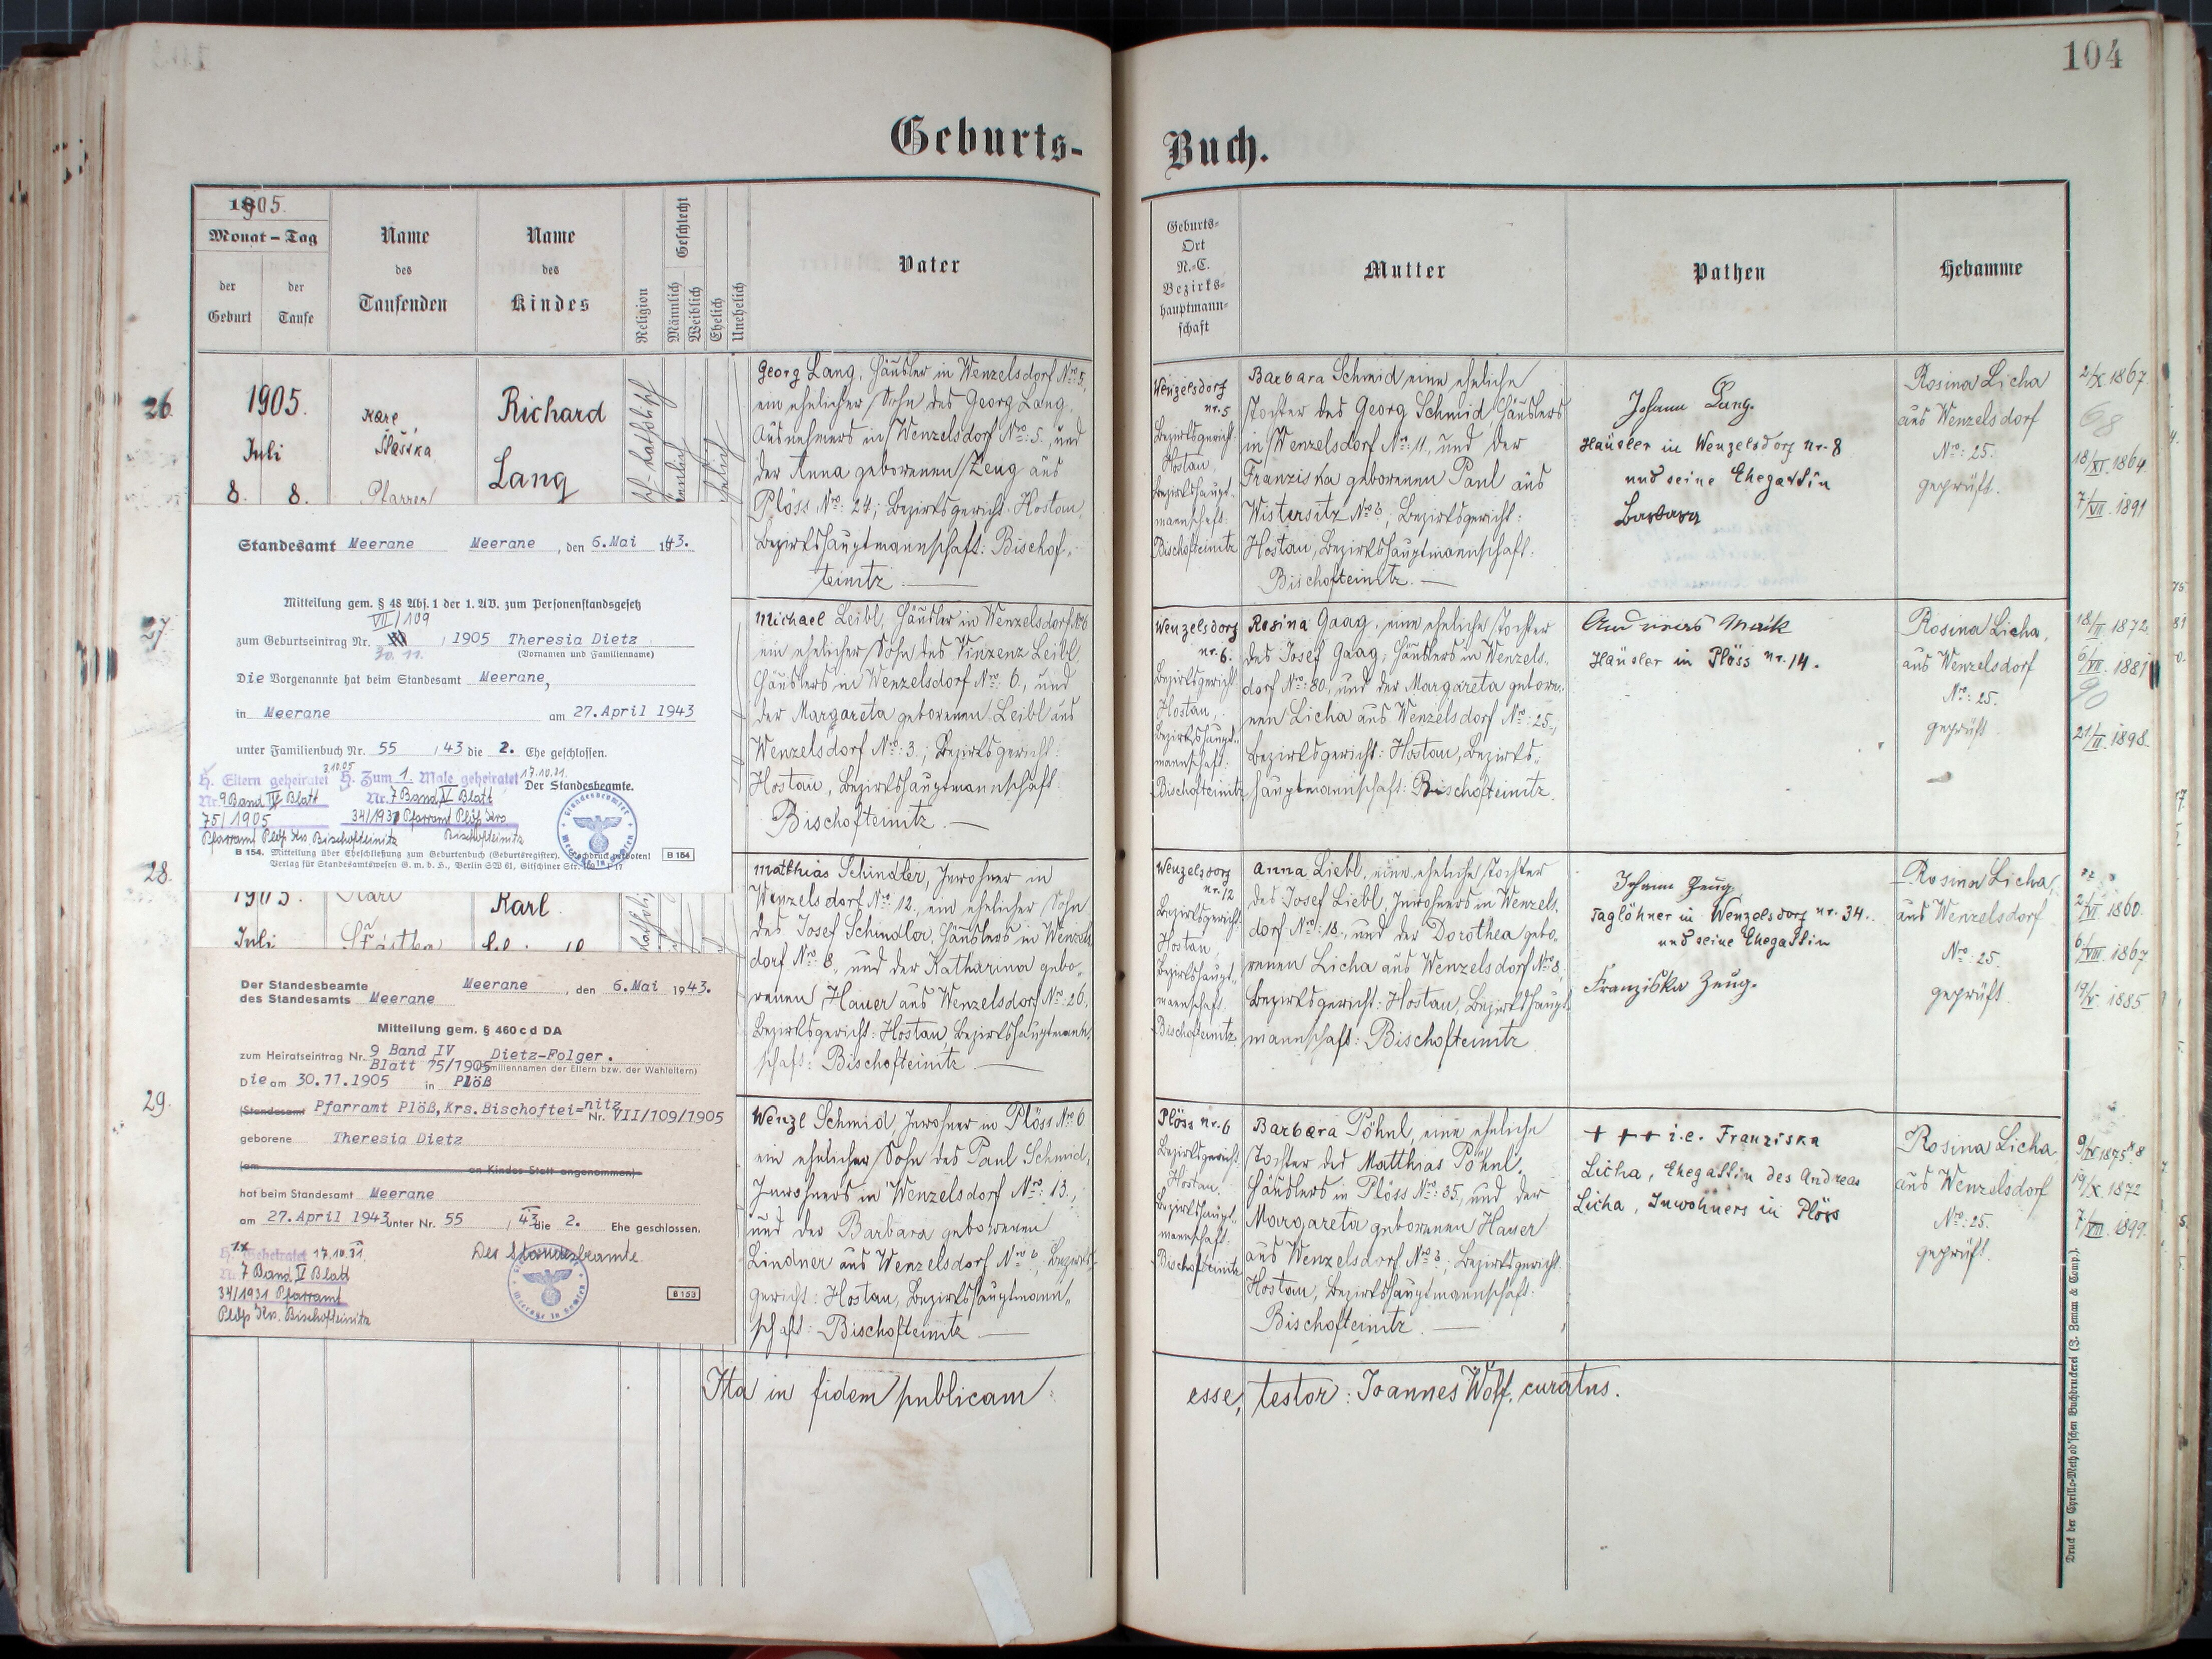 104
Geburts-
Buch.
1905.
Monat – Tag
der Geburt
der Taufe
Name
des
Taufenden
Name
des
Kindes
Religion
Geschlecht
Männlich
Weiblich
Ehelich
Unehelich
Vater
Geburts-
Ort
N.-C.
Bezirks-
hauptmann-
schaft
Mutter
Pathen
Hebamme
26.
1905.
Juli
8. 8.
Karl
Šlasska
Pfarrer
Richard
Lang
Georg Lang, Häusler in Wenzelsdorf Nro: 5,
ein ehelicher Sohn des Georg Lang,
Ausnehmers in Wenzelsdorf Nro: 5, und
der Anna geborenen Zeug aus
Plöss Nro: 24; Bezirksgericht Hostau,
Bezirkshauptmannschaft: Bischof-
teinitz.
Wenzelsdorf
nr. 5
Bezirksgericht:
Hostau,
Bezirkshaupt-
mannschaft:
Bischofteinitz
Barbara Schmid eine eheliche
Tochter des Georg Schmid, Häuslers
in Wenzelsdorf Nro: 11, und der
Franziska geborenen Paul aus
Wistersitz Nro: 6; Bezirksgericht:
Hostau, Bezirkshauptmannschaft:
Bischofteinitz.
Johann Lang.
Häusler in Wenzelsdorf nr. 8
und seine Ehegattin
Barbara
Rosina Licha
aus Wenzelsdorf
Nro: 25.
geprüft.
2/X 1867.
68
18/XI. 1864
7/VII. 1891
27.
Michael Leibl, Häusler in Wenzelsdorf Nro 6
ein ehelicher Sohn des Vinzenz Leibl,
Häuslers in Wenzelsdorf Nro: 6., und
der Margareta geborenen Leibl aus
Wenzelsdorf Nro: 3; Bezirksgericht:
Hostau, Bezirkshauptmannschaft:
Bischofteinitz.
Wenzelsdorf
nr. 6.
Bezirksgericht
Hostau,
Bezirkshaupt-
mannschaft:
Bischofteinitz
Rosina Gaag, eine eheliche Tochter
des Josef Gaag, Häuslers in Wenzels-
dorf Nro: 80, und der Margareta gebore-
nen Licha aus Wenzelsdorf Nro: 25.,
Bezirksgericht: Hostau, Bezirks-
hauptmannschaft: Bischofteinitz.
Andreas
Häusler in Plöss nr. 14.
Rosina Licha,
aus Wenzelsdorf
Nro: 25.
geprüft
18/II 1872.
6/VII. 1881
90
21/II. 1898.
28.
1905.
Juli
Karl
Šťastka
Karl
Matthias Schindler, Inwohner in
Wenzelsdorf Nro: 12., ein ehelicher Sohn
des Josef Schindler, Häuslers in Wenzels-
dorf Nro: 8., und der Katharina gebo-
renen Hauer aus Wenzelsdorf Nro: 26.
Bezirksgericht: Hostau, Bezirkshauptmann-
schaft: Bischofteinitz.
Wenzelsdorf
nr. 12
Bezirksgericht:
Hostau,
Bezirkshaupt-
mannschaft:
Bischofteinitz.
Anna Liebl, eine eheliche Tochter
des Josef Liebl, Inwohners in Wenzels-
dorf Nro: 18., und der Dorothea gebo-
renen Licha aus Wenzelsdorf Nro 8.;
Bezirksgericht: Hostau, Bezirkshaupt-
mannschaft: Bischofteinitz
Johann Zeug,
Taglöhner in Wenzelsdorf nr. 34.
und seine Ehegattin
Franziska Zeug.
Rosina Licha,
aus Wenzelsdorf
Nro: 25.
geprüft.
2/VI 1860.
6/VIII. 1867
19/V. 1885
29.
Wenzl Schmid, Inwohner in Plöss Nro 6
ein ehelicher Sohn des Paul Schmid,
Inwohners in Wenzelsdorf Nro: 13.,
und der Barbara geborenen
Lindner aus Wenzelsdorf Nro 6, Bezirks-
gericht: Hostau, Bezirkshauptmann-
schaft: Bischofteinitz.
Plöss nr. 6
Bezirksgericht
Hostau.
Bezirkshaupt-
mannschaft:
Bischofteinitz
Barbara Pöhnl, eine eheliche
Tochter des Matthias Pöhnl,
Häuslers in Plöss Nro: 35., und der
Margareta geborenen Hauer
aus Wenzelsdorf Nro 3; Bezirksgericht:
Hostau, Bezirkshauptmannschaft:
Bischofteinitz.
+ + + i.e. Franziska
Licha, Ehegattin des Andreas
Licha, Inwohners in Plöss
Rosina Licha,
aus Wenzelsdorf
Nro: 25.
geprüft.
19/X. 1872
7/VIII. 1899.
Ita in fidem publicam
esse, testor: Joannes Wolf, curatus.
Druck der Cyrillo-Method'schen Buchdruckerei (J. Zeman & Comp.).
Standesamt Meerane Meerane, den 6.Mai 1943.
Mitteilung gem. § 48 Abs. 1 der 1. AV. zum Personenstandsgesetz
VII/109
zum Geburtseintrag Nr. , 1905 Theresia Dietz
30. 11. (Vornamen und Familienname)
Die Vorgenannte hat beim Standesamt Meerane,
in Meerane am 27.April 1943
unter Familienbuch Nr. 55 /43 die 2. Ehe geschlossen.
3.10.05 17.10.31.
H. Eltern geheiratet H. Zum 1. Male geheiratet Der Standesbeamte.
Nr. 9 Band IV Blatt Nr. 7 Band V Blatt
75/1905 34/1931 Pfarramt Plöß Krs
Pfarramt Plöß Krs. Bischofteinitz Bischofteinitz
B 154. Mitteilung über Eheschließung zum Geburtenbuch (Geburtsregister). Nachdruck verboten! B 154
Verlag für Standesamtswesen G. m. b. H., Berlin SW 61, Gitschiner Str. 109
Der Standesbeamte Meerane, den 6.Mai 1943.
des Standesamts Meerane
Mitteilung gem. § 460 c d DA
zum Heiratseintrag Nr. 9 Band IV
Blatt 75/1905 Dietz-Folger.
(Familiennamen der Eltern bzw. der Wahleltern)
Die am 30.11.1905 in Plöß
(Standesamt Pfarramt Plöß,Krs.Bischoftei=nitz Nr. VII/109/1905
geborene Theresia Dietz
(am an Kindes Statt angenommen)
hat beim Standesamt Meerane
am 27.April 1943 unter Nr. 55 /43 die 2. Ehe geschlossen.
H. 1x Geheiratet 17.10.31.
Nr. 7 Band V Blatt
34/1931 Pfarramt
Plöß Krs. Bischofteinitz
Der Standesbeamte.
B 153